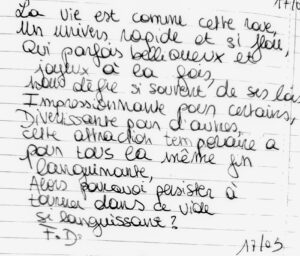 17/0
La vie est comme cette roue,
Un univers rapide et si flou,
Qui parfois belliqueux et
joyeux à la fois,
Nous défie si souvent de ses lois
Impressionnante pour certains,
Divertissante pour d'autres,
cette attraction temporaire a
pour tous la même fin
languissante,
Alors pourquoi persister à
tourner dans ce vide
si languissant ?
F. D.
17/05